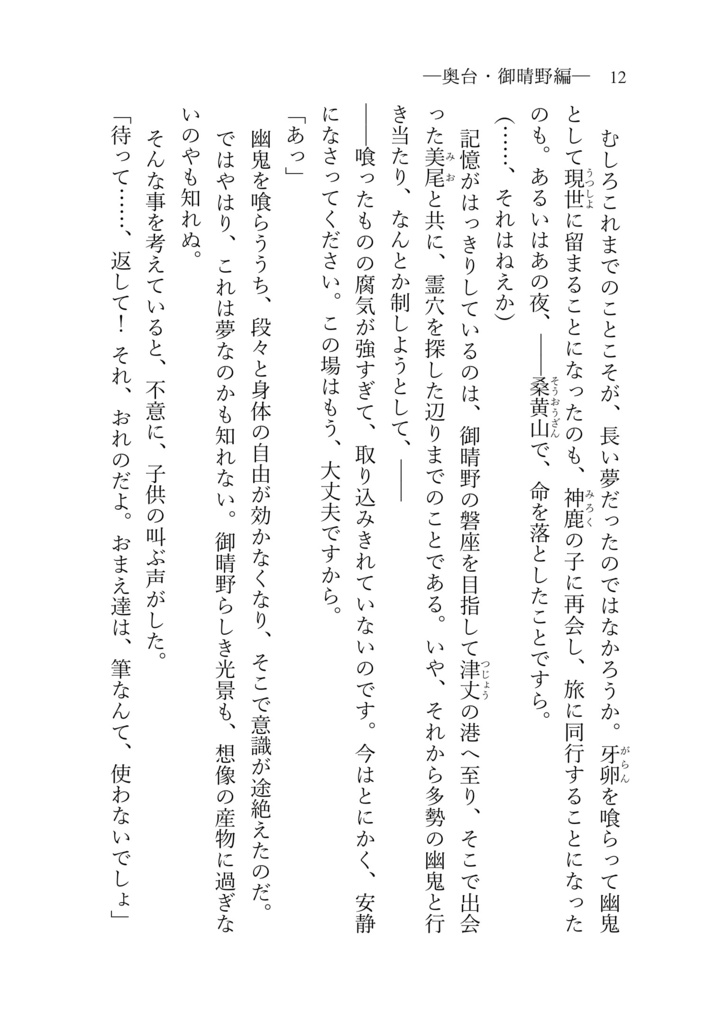 ―奥台・御晴野編― 12
むしろこれまでのことこそが、長い夢だったのではなかろうか。牙卵を喰らって幽鬼
がらん
として現世に留まることになったのも、神鹿の子に再会し、旅に同行することになった
うつしよ
みろく
のも。あるいはあの夜、――桑黄山で、命を落としたことですら。
そうおうざん
(……、それはねえか)
記憶がはっきりしているのは、御晴野の磐座を目指して津丈の港へ至り、そこで出会
つじょう
った美尾と共に、霊穴を探した辺りまでのことである。いや、それから多勢の幽鬼と行
みお
き当たり、なんとか制しようとして、――
――喰ったものの腐気が強すぎて、取り込みきれていないのです。今はとにかく、安静
になさってください。この場はもう、大丈夫ですから。
「あっ」
幽鬼を喰らううち、段々と身体の自由が効かなくなり、そこで意識が途絶えたのだ。
ではやはり、これは夢なのかも知れない。御晴野らしき光景も、想像の産物に過ぎな
いのやも知れぬ。
そんな事を考えていると、不意に、子供の叫ぶ声がした。
「待って……、返して! それ、おれのだよ。おまえ達は、筆なんて、使わないでしょ」